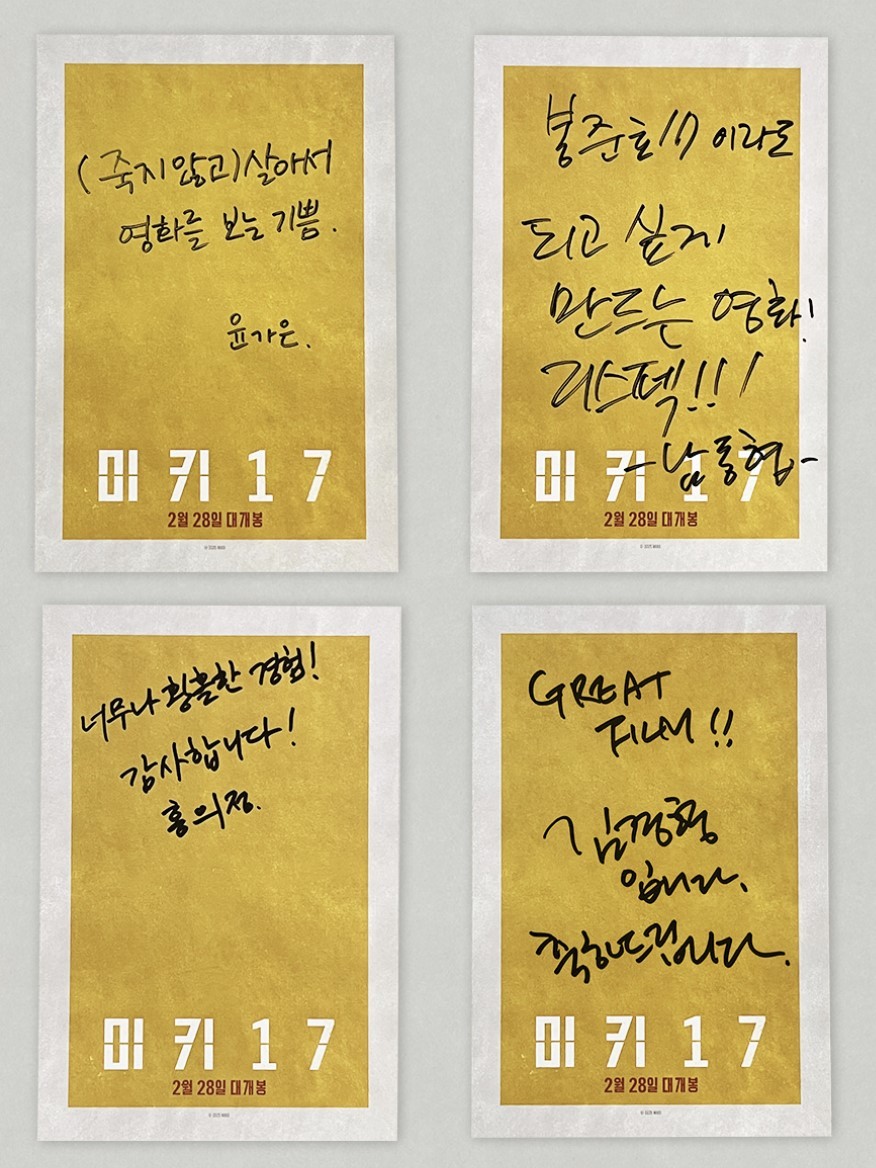 (죽지 않고) 살아서
영화를 보는 기쁨.
윤가은.
미키 17
2월 28일 대개봉
봉준호 17 이라도
되고 싶게
만드는 영화!
리스펙!!!
-남동협-
미키 17
2월 28일 대개봉
너무나 황홀한 경험!
감사합니다!
홍의정.
미키 17
2월 28일 대개봉
GREAT
FILM!!
김경형
입니다.
축하드립니다.
미키 17
2월 28일 대개봉